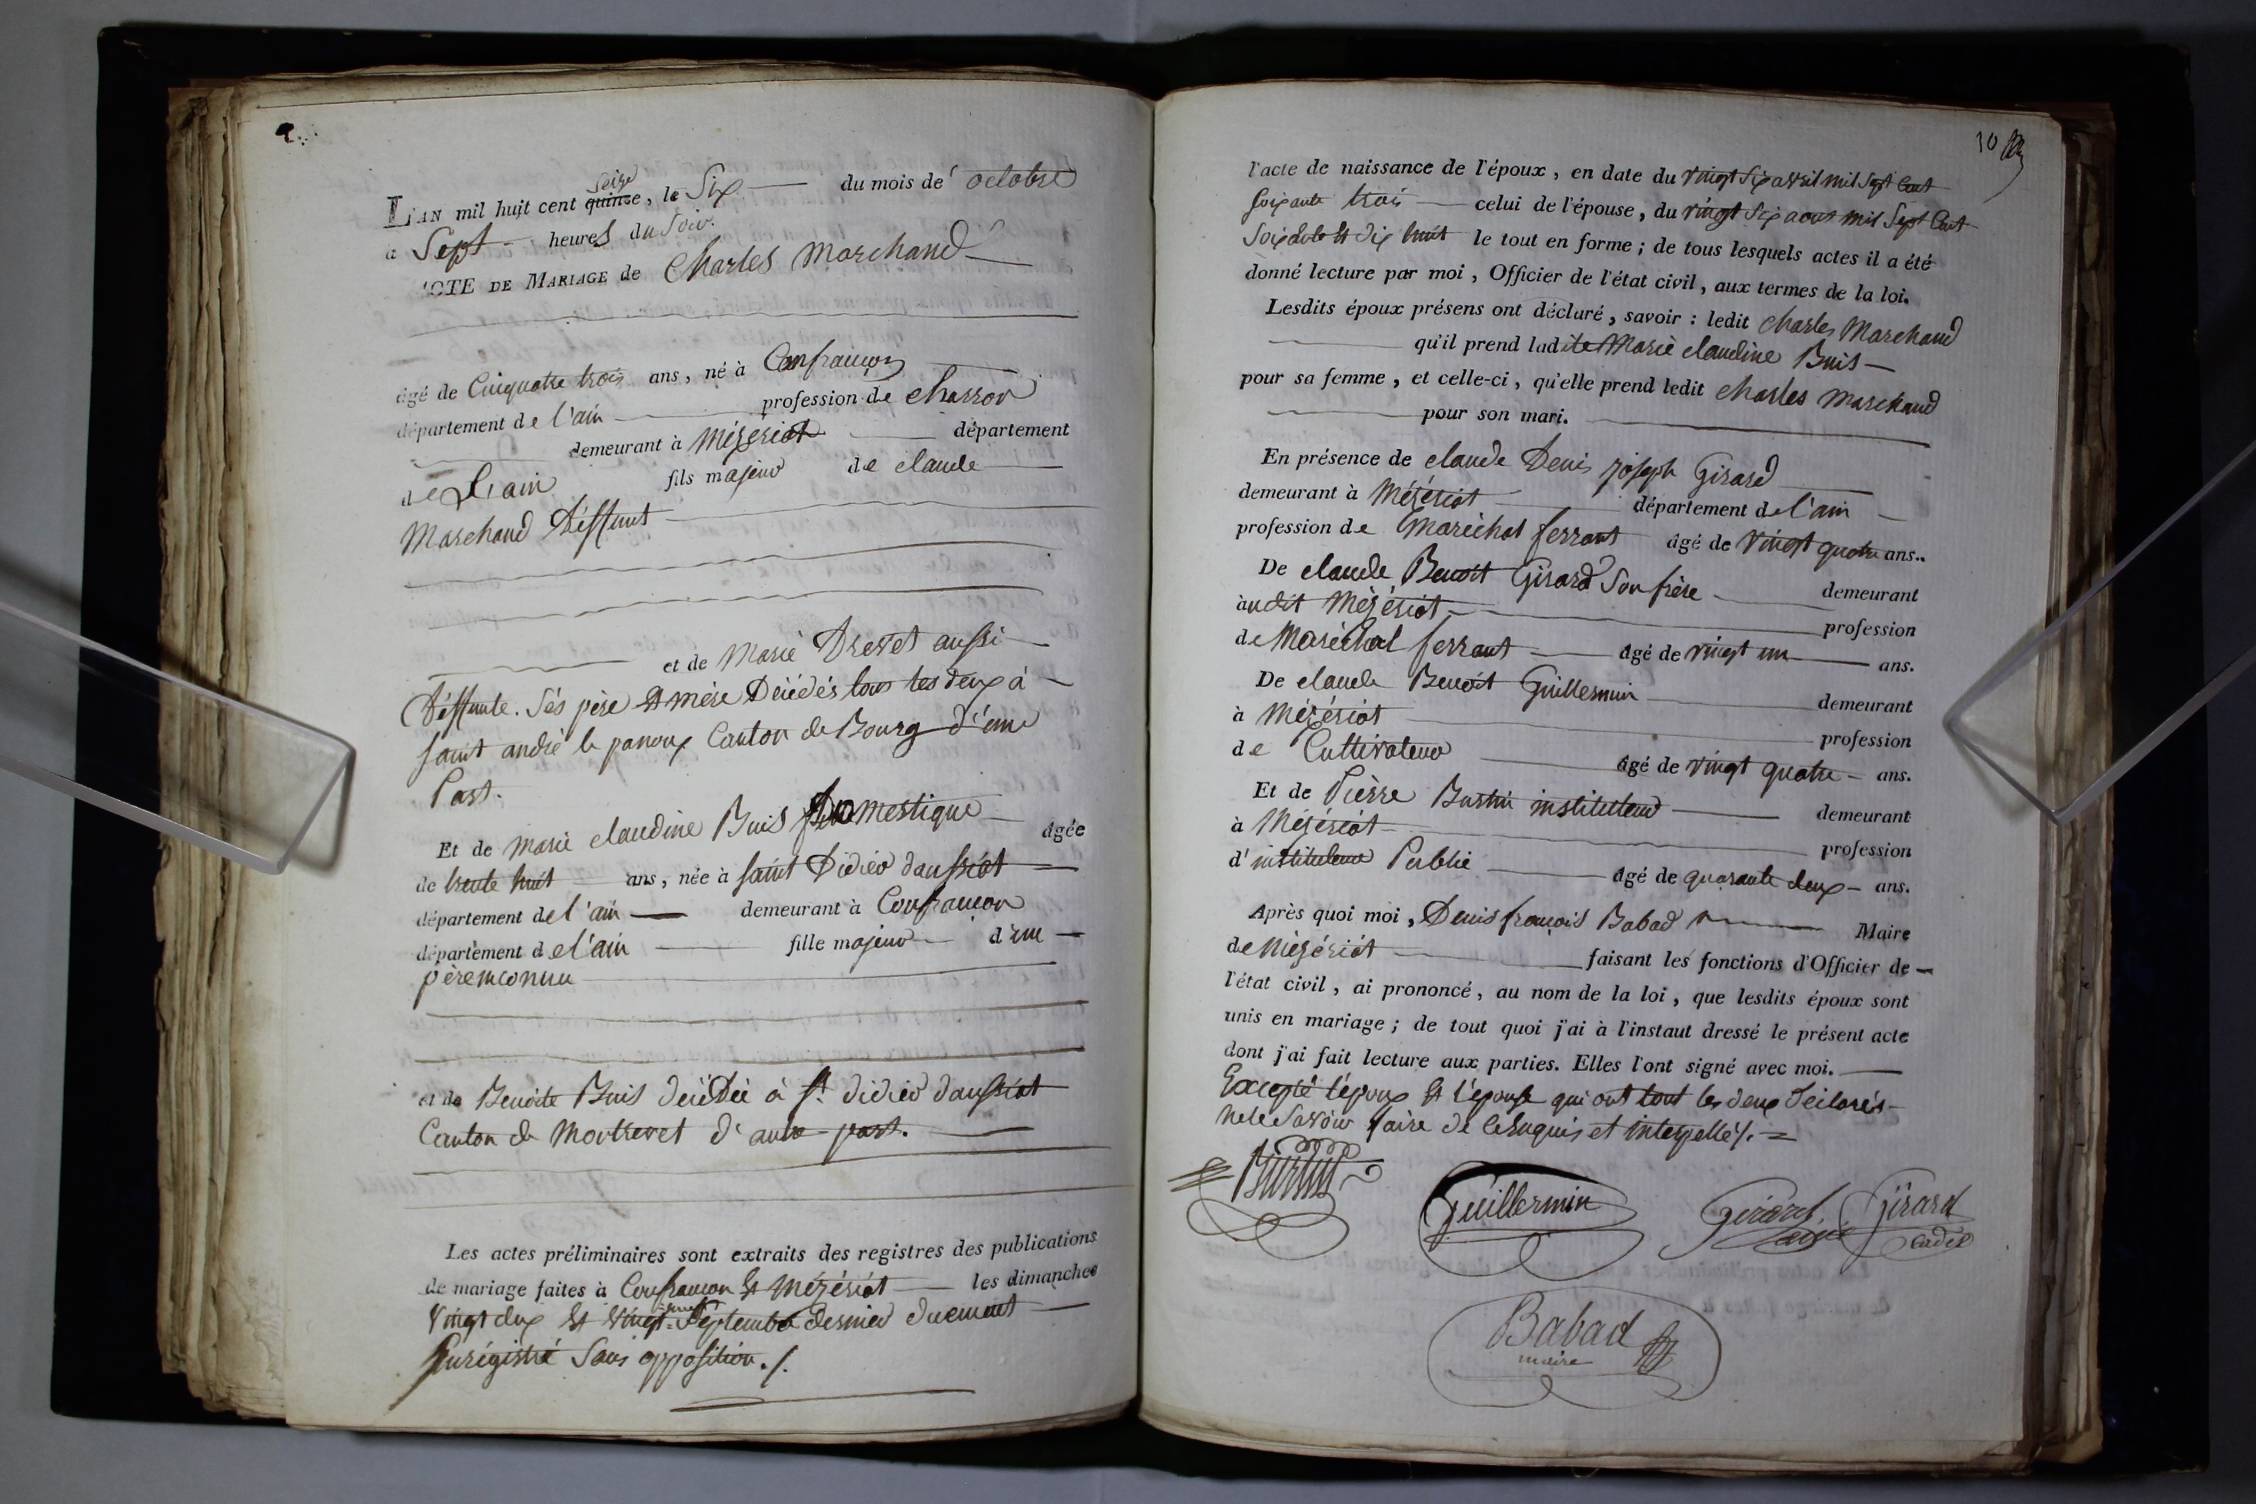 L'AN mil huit cent quinze seize, le Six du mois de octobre
à Sept heures du Soir.
ACTE DE MARIAGE de Charles Marchand
âgé de Cinquante trois ans, né à Confrançon
département de l'ain profession de charron
demeurant à Mézeriat département
de L'ain fils majeur de claude
Marchand Déffunt
et de Marie Drevet aussi
Déffunte. Ses père et mère Décédés tous les deux à
saint andré le panoux Canton de Bourg d'une
Part.
Et de Marie claudine Buis Domestique âgée
de trente huit ans, née à saint Didier daussiat
département de l'ain demeurant à Confrançon
département de l'ain fille majeur d'un
père inconnu
et de Benoite Buis décédée à St. didier daussiat
Canton de Montrevet d'autre part.
Les actes préliminaires sont extraits des registres des publications
de mariage faites à Confrançon et Mézériat les dimanches
vingt deux et vingt neuf Septembre dernier duement
Enrégistré Sans opposition./.
10
l'acte de naissance de l'époux, en date du vingt six avril mil sept Cent
soixante trois celui de l'épouse, du vingt six aout mil Sept Cent
Soixante et dix huit le tout en forme; de tous lesquels actes il a été
donné lecture par moi, Officier de l'état civil, aux termes de la loi.
Lesdits époux présens ont déclaré, savoir: ledit Charles Marchand
qu'il prend ladite Marie claudine Buis
pour sa femme, et celle-ci, qu'elle prend ledit Charles Marchand
pour son mari.
En présence de claude Denis joseph Girard
demeurant à Mézériat département de l'ain
profession de Maréchal ferrant âgé de vingt quatre ans..
De claude Benoit Girard Son frère demeurant
àudit Mézériat profession
de Maréchal ferrant âgé de vingt un ans.
De claude Benoit Guillermin demeurant
à Mézériat profession
de Cultivateur âgé de vingt quatre ans.
Et de Pièrre Burtin instituteur demeurant
à Mézériat profession
d'instituteur Public âgé de quarante deux ans.
Après quoi moi, Denis françois Babad Maire
de Mézériat faisant les fonctions d'Officier de
l'état civil, ai prononcé, au nom de la loi, que lesdits époux sont
unis en mariage; de tout quoi j'ai à l'instaut dressé le présent acte
dont j'ai fait lecture aux parties. Elles l'ont signé avec moi.
Excepté l'époux et l'épouse qui ont tout les deux déclarés
ne le Savoir faire de ce Enquis et interpellés./.
Burtin
Guillermin
Girard
Girard
cadet
Babad
maire